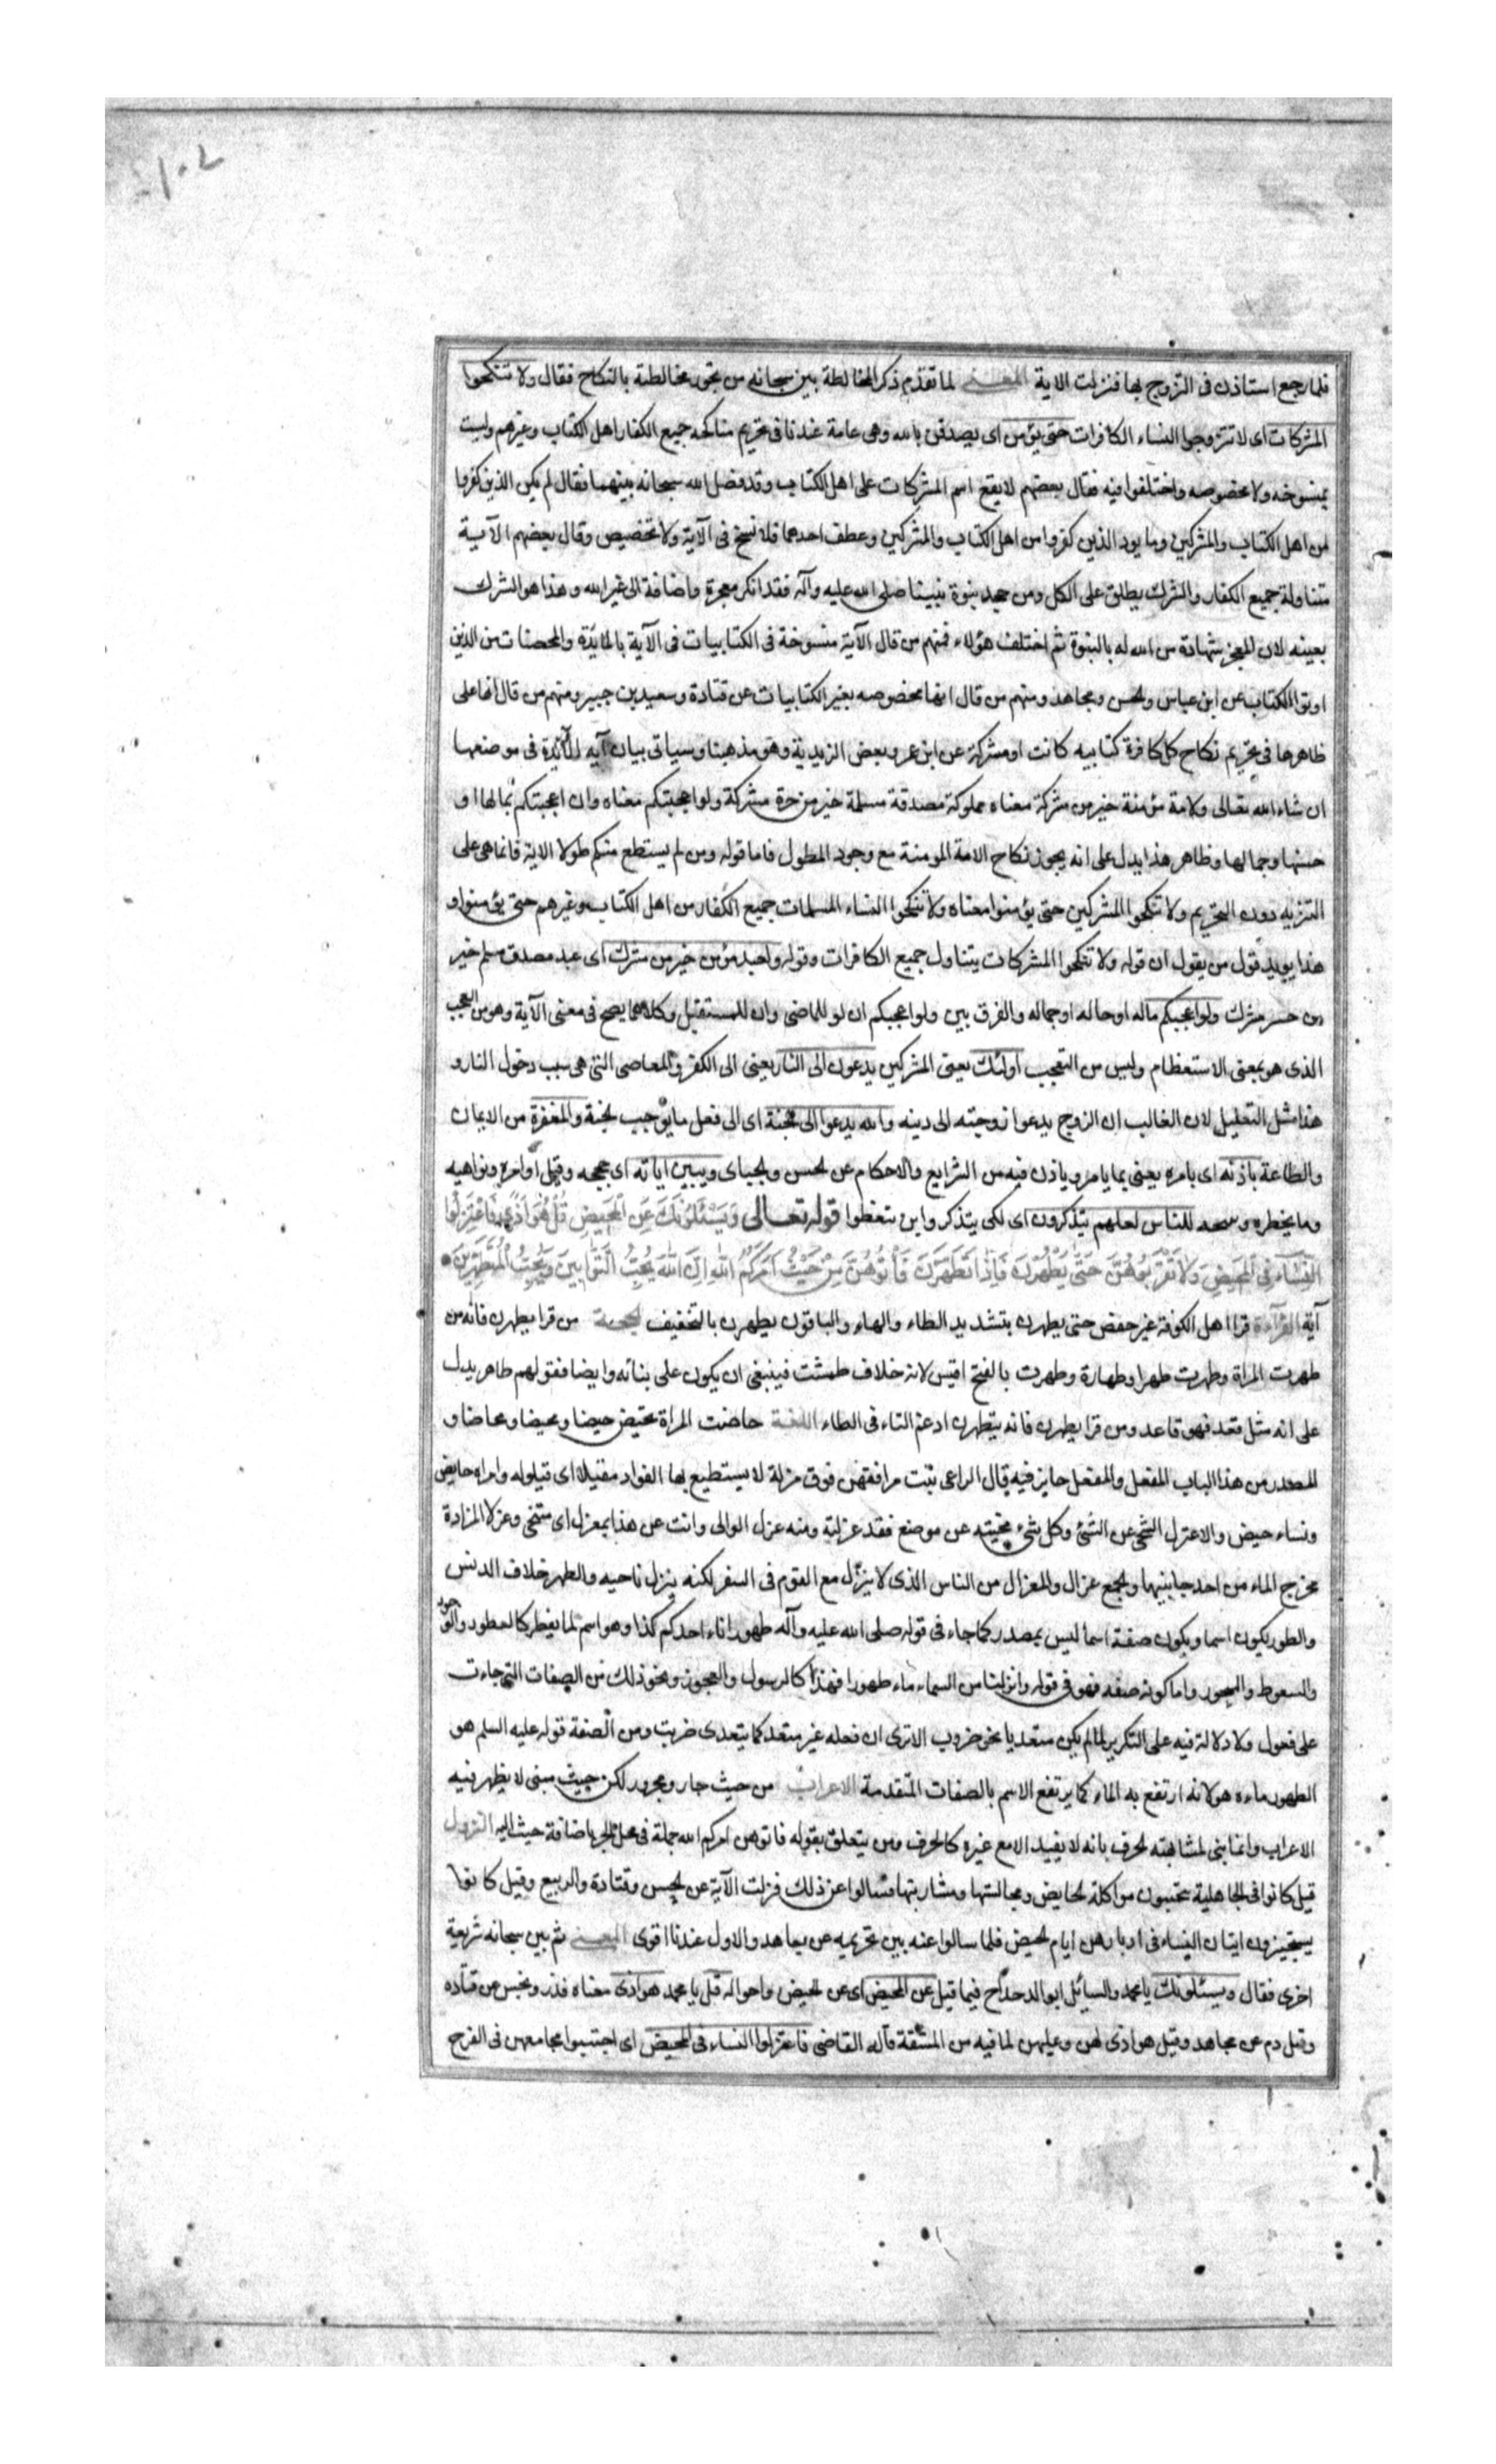 ١٠٢
فلما رجع استاذن فى التزوج بها فنزلت الاية المعنى لما تقدم ذكر المخالطة بين سبحانه من تجوز مخالطته بالنكاح فقال ولا تنكحوا
المشركات اى لا تتزوجوا النساء الكافرات حتى يؤمن اى يصدقن بالله وهى عامة عندنا فى تحريم مناكحه جميع الكفار اهل الكتاب وغيرهم وليست
بمنسوخه ولا مخصوصه واختلفوا فيه فقال بعضهم لا يقع اسم المشركات على اهل الكتاب وقد فصل الله سبحانه بينهما فقال لم يكن الذين كفروا
من اهل الكتاب والمشركين وما يود الذين كفروا من اهل الكتاب والمشركين وعطف احدهما فلا نسخ فى الآية ولا تخصيص وقال بعضهم الآية
متناولة جميع الكفار والشرك يطلق على الكل ومن جحد بنوة نبينا صلى الله عليه وآله فقد انكر معجزة واضافة الى غير الله وهذا هو الشرك
بعينه لان المعجز شهادة من الله له بالنبوة ثم اختلف هؤلاء فمنهم من قال الآية منسوخة فى الكتابيات فى الآية بالمائدة والمحصنات من الذين
اوتوا الكتاب عن ابن عباس والحسن ومجاهد ومنهم من قال انها مخصوصه بغير الكتابيات عن قتادة وسعيد بن جبير ومنهم من قال انها على
ظاهرها فى تحريم نكاح كل كافرة كتابيه كانت او مشركة عن ابن عمر وبعض الزيدية وهو مذهبنا وسياتى بيان آيه المائدة فى موضعها
ان شاء الله تعالى ولامة مؤمنة خير من مشركة معناه مملوكة مصدقة مسلمة خير من حرة مشركة ولو اعجبتكم معناه وان اعجبتكم بمالها او
حسنها وجمالها وظاهر هذا يدل على انه يجوز نكاح الامة المومنة مع وجود الطول فاما قوله ومن لم يستطع منكم طولا الاية فانما هى على
التنزيه دون التحريم ولا تنكحوا المشركين حتى يؤمنوا معناه ولا تنكحوا النساء المسلمات جميع الكفار من اهل الكتاب وغيرهم حتى يؤمنوا و
هذا يويد قول من يقول ان قوله ولا تنكحوا المشركات يتناول جميع الكافرات وقوله ولعبد مؤمن خير من مشرك اى عبد مصدق مسلم خير
من حر مشرك ولو اعجبكم ماله او حاله او جماله والفرق بين ولو اعجبكم ان لو للماضى وان للمستقبل وكلاهما يصح فى معنى الآية وهو من العجب
الذى هو بمعنى الاستعظام وليس من التعجب اولئك يعنى المشركين يدعون الى النار يعنى الى الكفر والمعاصى التى هى سبب دخول النار و
هذا مثل التعليل لان الغالب ان الزوج يدعوا زوجته الى دينه والله يدعوا الى الجنة اى الى فعل ما يوجب الجنة والمغفرة من الايمان
والطاعة باذنه اى بامره يعنى بما يامر وياذن فيه من الشرايع والاحكام عن الحسن والجباى ويبين اياته اى حججه وقيل اوامره ونواهيه
وما يخطره ويبيحه للناس لعلهم يتذكرون اى لكى يتذكروا بن يتعظوا قوله تعالى وَيَسْئَلُونَكَ عَنِ الْمَحِيضِ قُلْ هُوَ اَذًى فَاعْتَزِلُوا
النِّسَاءَ فِى الْمَحِيضِ وَلَا تَقْرَبُوهُنَّ حَتَّى يَطْهُرْنَ فَاِذَا تَطَهَّرْنَ فَأْتُوهُنَّ مِنْ حَيْثُ اَمَرَكُمُ اللهُ اِنَّ اللهَ يُحِبُّ التَّوَّابِينَ وَيُحِبُّ الْمُتَطَهِّرِينَ
آية القرآءة قرا اهل الكوفة غير حفص حتى يطهرن بتشديد الطاء والهاء والباقون يطهرن بالتخفيف الحجة من قرا يطهرن فانه من
طهرت المراة وطهرت طهرا وطهارة وطهرت بالفتح اقيس لانه خلاف طمثت فينبغى ان يكون على بنائه وايضا فقولهم طاهر يدل
على انه مثل قعد فهو قاعد ومن قرا يطهرن فانه يتطهرن ادغم التاء فى الطاء اللغة حاضت المراة تحيض حيضا ومحيضا ومحاضا و
المصدر من هذا الباب المفعل والمفعل جايز فيه قال الراعى بنيت مرافقهن فوق مزلة لا يستطيع بها القراد مقيلا اى قيلوله وامراه حايض
ونساء حيض والاعتزل التنحى عن الشئ وكل شئ نحيته عن موضع فقد عزلته ومنه عزل الوالى وانت عن هذا بمعزل اى متنحى وعزلا المزادة
مخرج الماء من احد جانبيها والجمع عزال والمعزال من الناس الذى لا ينزل مع القوم فى السفر لكنه ينزل ناحيه والطهر خلاف الدنس
والطور يكون اسما ويكون صفة اسما ليس بمصدر كما جاء فى قوله صلى الله عليه وآله طهور اناء احدكم كذا وهو اسم لما يفطر كالفطور والوجور
والسعوط والسحور واما كونه صفه فهو فى قوله وانزلنا من السماء ماء طهورا فهذا كالرسول والعجوز ونحو ذلك من الصفات التى جاءت
على فعول ولا دلالة فيه على التكرير لما لم يكن متعديا نحو ضروب الا ترى ان فعله غير متعد كما يتعدى ضربت ومن الصفة قوله عليه السلم هو
الطهور ماءه هو لانه ارتفع به الماء كما يرتفع الاسم بالصفات المتقدمة الاعراب من حيث جار ومجرور لكن حيث مبنى لا يظهر فيه
الاعراب وانما بنى لمشابهته الحرف بانه لا يفيد الا مع غيره كالحرف ومن يتعلق بقوله فاتوهن امركم الله جملة فى محل الجر باضافة حيث اليه النزول
قيل كانوا فى الجاهلية يجتنبون مواكلة الحايض ومجالستها ومشاربتها فسالوا عن ذلك فنزلت الآية عن الحسن وقتادة والربيع وقيل كانوا
يستجيزون ايتان النساء فى ادبارهن ايام الحيض فلما سالوا عنه بين تحريمه عن مجاهد والاول عندنا اقوى المعنى ثم بين سبحانه شريعة
اخرى فقال ويسئلونك يا محمد والسائل ابو الدحداح فيما قيل عن المحيض اى عن الحيض واحواله قل يا محمد هو اذى معناه قذر ونجس عن قتاده
وقيل دم عن مجاهد وقيل هو اذى لهن وعليهن لما فيه من المشقة قاله القاضى فاعتزلوا النساء فى المحيض اى اجتنبوا مجامعهن فى الفرج